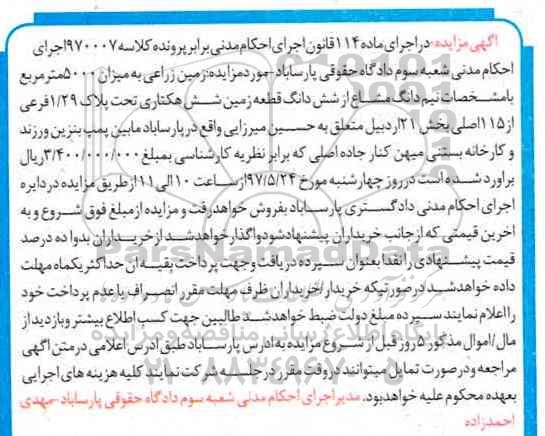 آگهی مزایده- در اجرای ماده ۱۱۴ قانون اجرای احکام مدنی برابر پرونده کلاسه ۹۷۰۰۰۷ اجرای
احکام مدنی شعبه سوم دادگاه حقوقی پارساباد- مورد مزایده:زمین زراعی به میزان ۵۰۰۰متر مربع
بامشخصات نیم دانگ مشاع از شش دانگ قطعه زمین شش هکتاری تحت پلاک ۱/۲۹فرعی
از ۱۱۵اصلی بخش ۲۱اردبیل متعلق به حسین میرزایی واقع در پارساباد مابین پمپ بنزین ورزند
و کارخانه بستنی میهن کنار جاده اصلی که برابر نظریه کارشناسی بمبلغ ۳/۴۰۰/۰۰۰/۰۰۰ریال
براورد شده است در روز چهارشنبه مورخ ۹۷/۵/۲۴ از ساعت ۱۰ الی ۱۱ از طریق مزایده در دایره
اجرای احکام مدنی دادگستری پارساباد بفروش خواهد رفت و مزایده از مبلغ فوق شروع و به
اخرین قیمتی که از جانب خریداران پیشنهاد شود واگذار خواهد شد از خریداران بدوا ده درصد
قیمت پیشنهادی را نقدا بعنوان سپرده دریافت وجهت پرداخت بقیه آن حداکثر یکماه مهلت
داده خواهد شد در صورتیکه خریدار/خریداران ظرف مهلت مقرر انصراف یا عدم پرداخت خود
را اعلام نمایند سپرده مبلغ دولت ضبط خواهد شد طالبین جهت کسب اطلاع بیشتر و بازدید از
مال/اموال مذکور ۵ روز قبل از شروع مزایده به ادرس پارساباد طبق ادرس اعلامی در متن آگهی
مراجعه و در صورت تمایل میتوانند در وقت مقرر در جلسه شرکت نمایند کلیه هزینه های اجرایی
بعهده محکوم علیه خواهد بود. مدیر اجرای احکام مدنی شعبه سوم دادگاه حقوقی پارساباد-مهدی
احمدزاده
ParsNamadData
پایگاه اطلاع رسانی مناقصه و مزایده